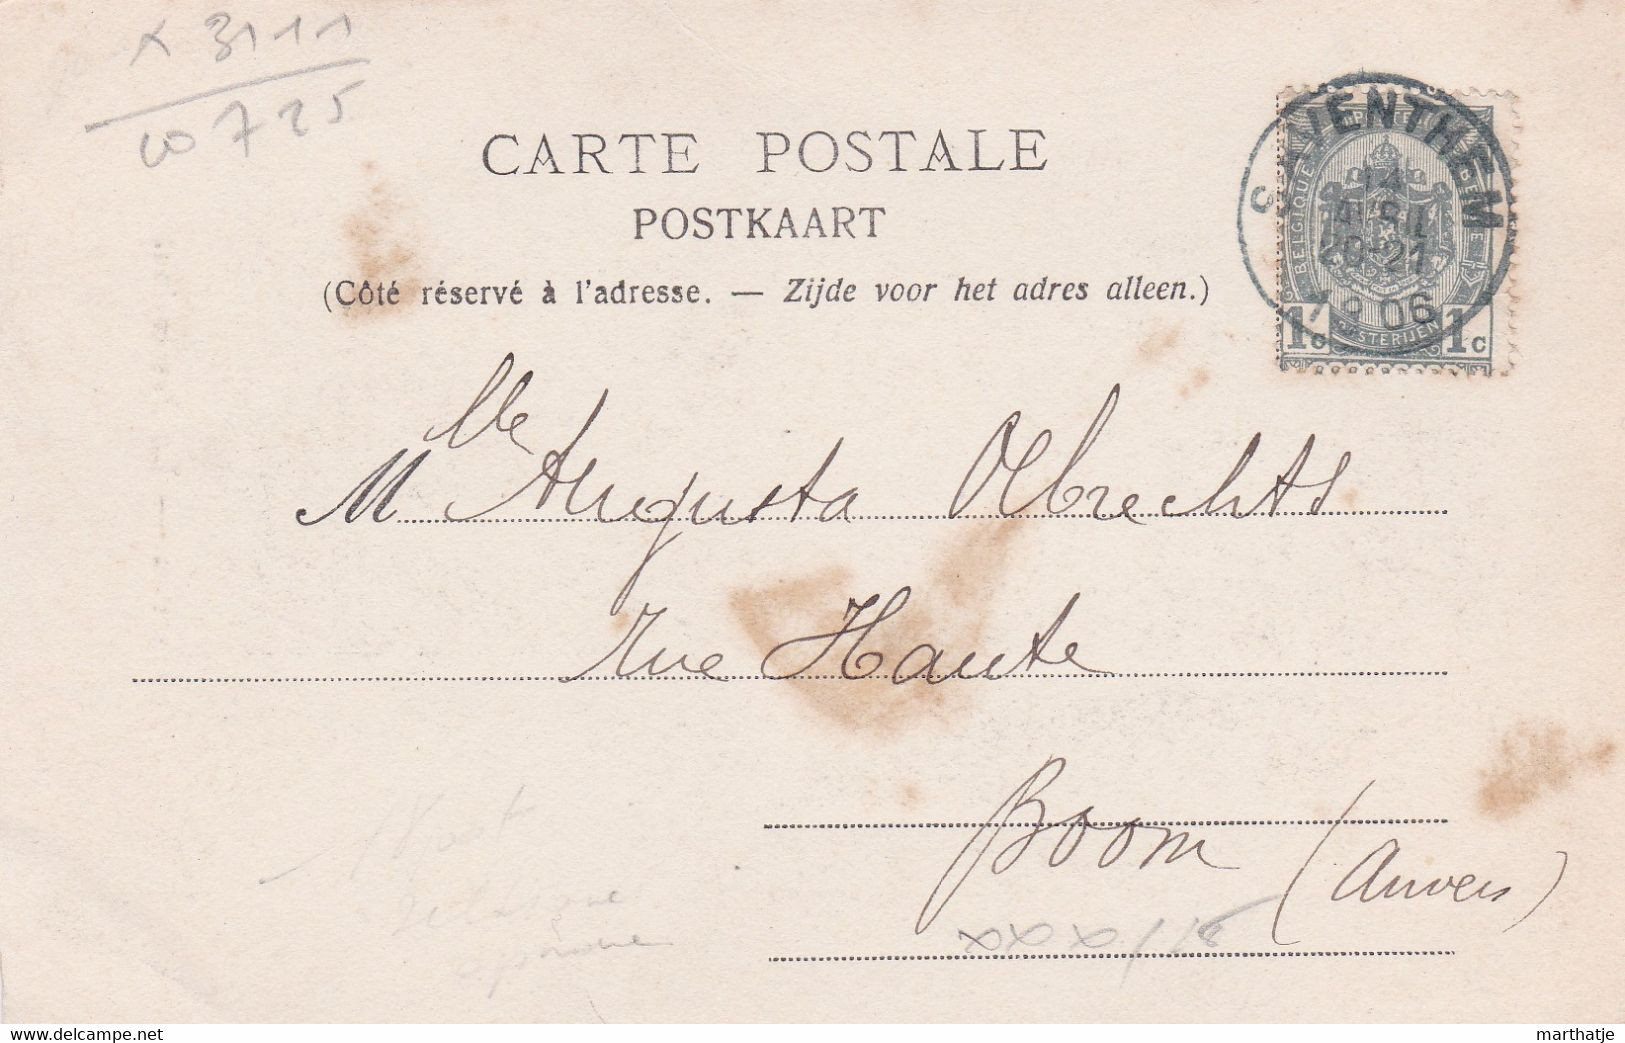 x 3111
W 725
CARTE POSTALE
POSTKAART
(Côté réservé à l'adresse. — Zijde voor het adres alleen.)
SAVENTHEM
14
AVRIL
20-21
1906
BELGIQUE
BELGIË
POSTERIJEN
1c 1c
Mlle Augusta Olbrechts
rue Haute
Boom (Anvers)
delcampe.net
marthatje